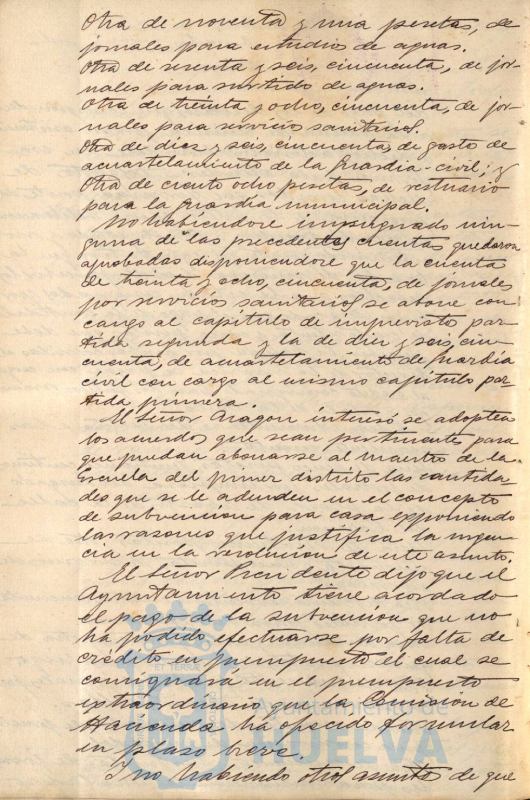 Otra de noventa y una pesetas, de
jornales para estudios de aguas.
Otra de sesenta y seis, cincuenta, de jor-
nales para surtido de aguas.
Otra de treinta y ocho, cincuenta, de jor-
nales para servicio sanitario.
Otra de diez y seis, cincuenta, de gasto de
acuartelamiento de la Guardia-civil; y
Otra de ciento ocho pesetas, de vestuario
para la Guardia municipal.
No habiéndose impugnado nin-
guna de las precedentes cuentas quedaron
aprobadas disponiéndose que la cuenta
de treinta y ocho, cincuenta, de jornales
por servicios sanitarios se abone con
cargo al capítulo de imprevisto par-
tida segunda y la de diez y seis, cin-
cuenta, de acuartelamiento de Guardia
civil con cargo al mismo capítulo par-
tida primera.
El Señor Aragon interesó se adopten
los acuerdos que sean pertinentes para
que puedan abonarse al maestro de la
Escuela del primer distrito las cantida-
des que se le adeuden en el concepto
de subvencion para casa exponiendo
las razones que justifica la urgen-
cia en la resolucion de este asunto.
El Señor Presidente dijo que el
Ayuntamiento tiene acordado
el pago de la subvencion que no
ha podido efectuarse por falta de
crédito en presupuesto el cual se
consignará en el presupuesto
extraordinario que la Comisión de
Hacienda ha ofrecido formular
en plazo breve.
Y no habiendo otros asuntos de que
Ayuntamiento de
HUELVA